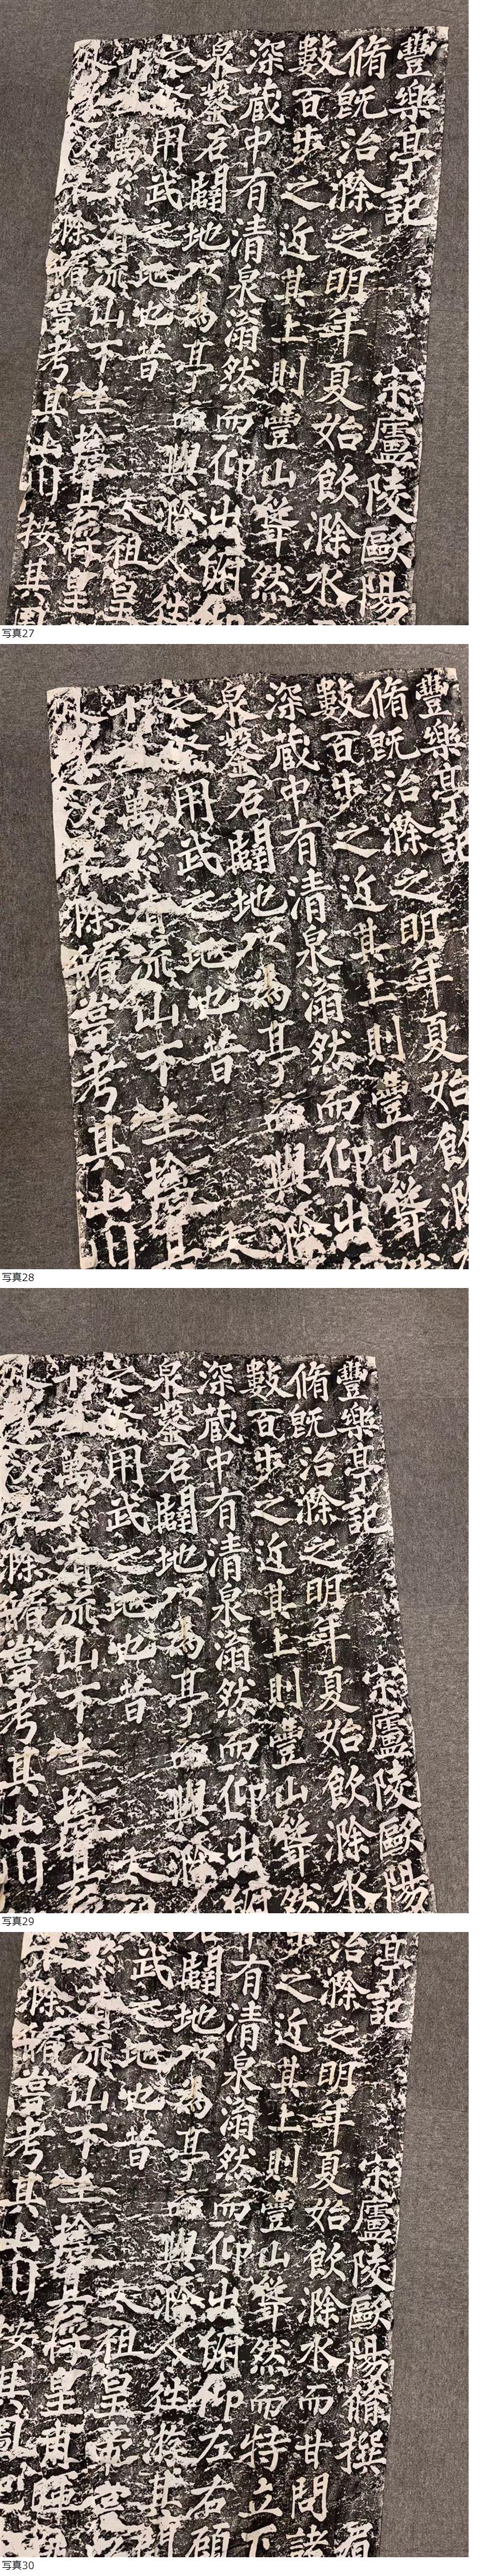 豐樂亭記 宋廬陵歐陽
脩既治滁之明年夏始飲滁水
數百步之近其上則豐山聳然
深蔵中有清泉滃然而仰出俯仰
泉鑿石闢地以為亭而與滁人往
用武之地也昔 太祖皇
萬於清流山下生擒其將皇
滁脩嘗考其山川按其圖
写真27
豐樂亭記
脩既治滁之明年夏始飲滁
數百步之近其上則豐山聳
深蔵中有清泉滃然而仰出
泉鑿石闢地以為亭而與滁
用武之地也昔 太
萬於清流山下生擒其
滁脩嘗考其山川
写真28
豐樂亭記 宋廬陵歐陽
脩既治滁之明年夏始飲滁水
數百步之近其上則豐山聳然
深蔵中有清泉滃然而仰出俯
泉鑿石闢地以為亭而與滁
用武之地也昔 太
萬於清流山下生擒其
滁脩嘗考其山川
写真29
亭記 宋廬陵歐陽脩撰
治滁之明年夏始飲滁水而甘問諸
之近其上則豐山聳然而特立下
有清泉滃然而仰出俯仰左右顧
闢地以為亭而與滁人往遊其間
武之地也昔 太祖皇帝嘗
清流山下生擒其將皇甫暉
滁脩嘗考其山川按其圖
写真30